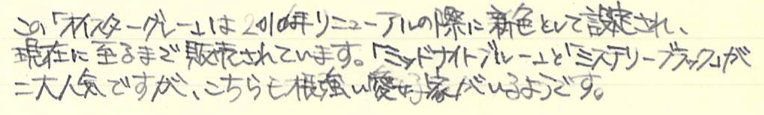 この「オイスターグレー」は2010年リニューアルの際に新色として設定され、
現在に至るまで販売されています。「ミッドナイトブルー」と「ミステリーブラック」が
二大人気ですが、こちらも根強い愛好家がいるようです。